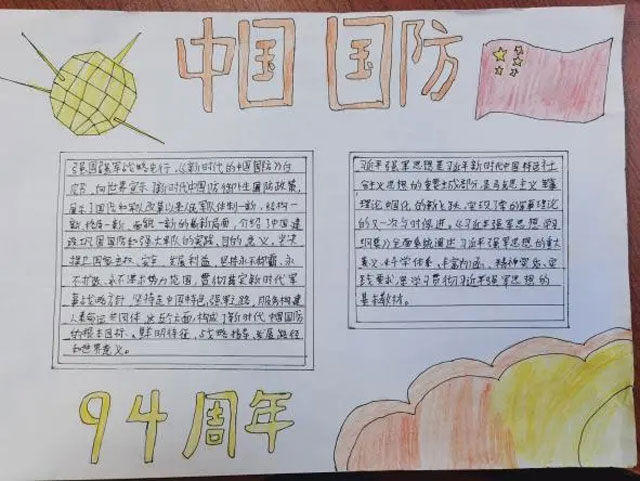 中国国防
强国强军战略先行,《新时代的中国国防》白
皮书,向世界宣示了新时代中国防御性国防政策,
展示了国防和军队改革以来人民军队体制一新、结构一
新、格局一新、面貌一新的最新局面,介绍了中国建
设巩固国防和强大军队的实践、目的、意义,坚决
捍卫国家主权、安全、发展利益,坚持永不称霸、永
不扩张、永不谋求势力范围,贯彻落实新时代军
事战略方针,坚持走中国特色强军之路,服务构建
人类命运共同体,这五个方面,构成了新时代中国国防
的根本目标、鲜明特征、战略指导、发展路径
和世界意义。
习近平强军思想是习近平新时代中国特色社
会主义思想的重要组成部分,是马克思主义军事
理论中国化的新飞跃,实现了党的军事理论
的又一次与时俱进。《习近平强军思想学习
纲要》全面系统阐述习近平强军思想的重大
意义、科学体系、丰富内涵、精神实质、实
践要求,是学习贯彻习近平强军思想的
基本教材。
94周年